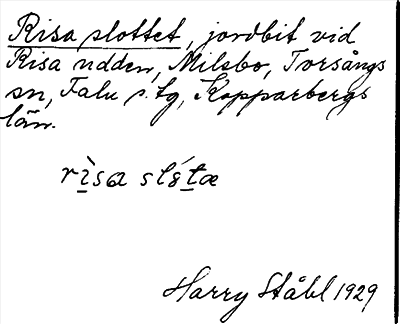 Risa slottet, jordbit vid
Risa udden, Milsbo, Torsångs
sn, Falu s. tg, Kopparbergs
län.
rìsa slótæ
Harry Ståhl 1929